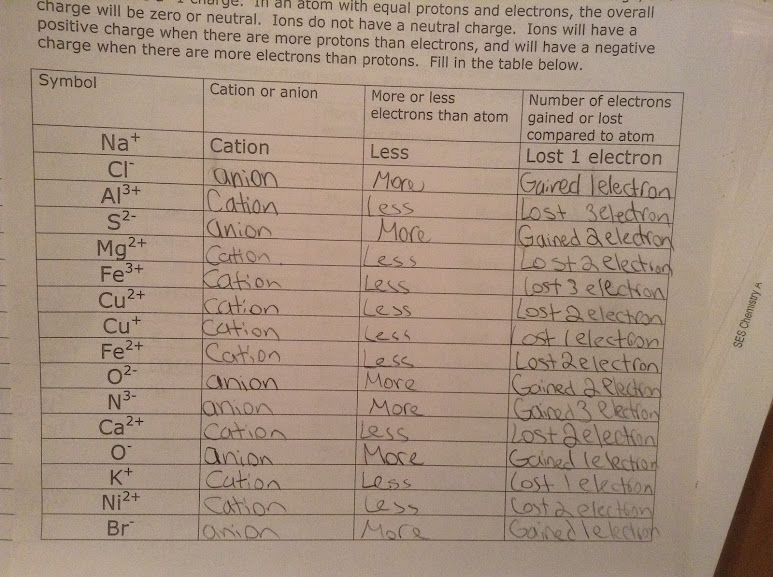 In an atom with equal protons and electrons, the overall
charge will be zero or neutral. Ions do not have a neutral charge. Ions will have a
positive charge when there are more protons than electrons, and will have a negative
charge when there are more electrons than protons. Fill in the table below.
Symbol Cation or anion More or less electrons than atom Number of electrons gained or lost compared to atom
Na⁺ Cation Less Lost 1 electron
Cl⁻ anion More Gained 1electron
Al³⁺ Cation Less Lost 3electron
S²⁻ anion More Gained 2electron
Mg²⁺ Cation Less Lost 2 electron
Fe³⁺ Cation Less Lost 3 electron
Cu²⁺ Cation Less Lost 2 electron
Cu⁺ Cation Less Lost 1 electron
Fe²⁺ Cation Less Lost 2 electron
O²⁻ anion More Gained 2 electron
N³⁻ anion More Gained 3 electron
Ca²⁺ Cation Less Lost 2 electron
O⁻ anion More Gained 1 electron
K⁺ Cation Less Lost 1 electron
Ni²⁺ Cation Less Lost 2 electron
Br⁻ anion More Gained 1 electron
SES Chemistry A